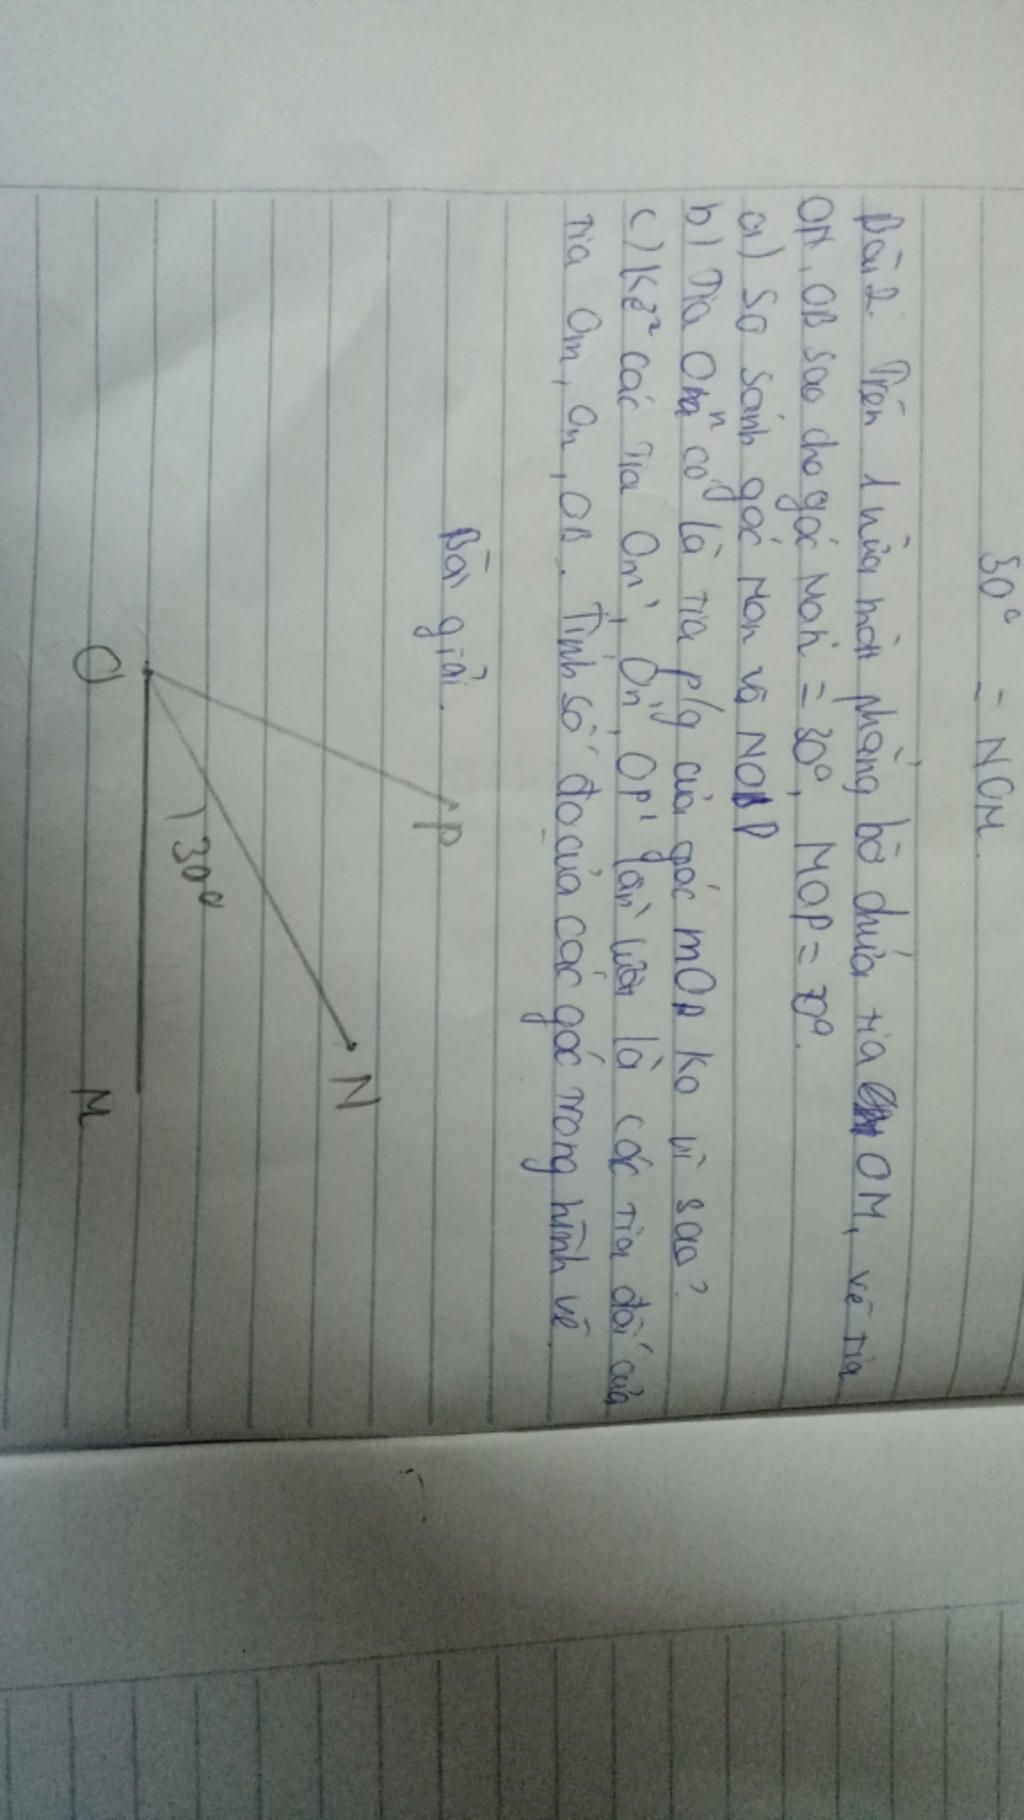 30° = NOM.
Bài 2. Trên 1 nửa mặt phẳng bờ chứa tia OM, vẽ tia
ON, OB sao cho góc MON = 30°, MOP = 70°.
a) So sánh góc MON và NOP
b) Tia On có là tia p/g của góc mOp ko vì sao?
c) Kẻ² các tia Om', On', OP' lần lượt là các tia đối của
tia Om, On, OB. Tính số đo của các góc trong hình vẽ.
Bài giải.
P
N
30°
O
M